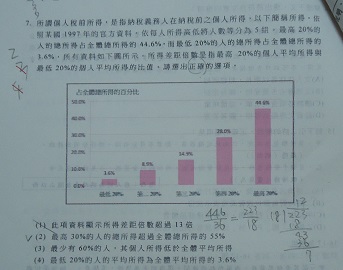 7. 所謂個人稅前所得，是指納稅義務人在納稅前之個人所得，以下簡稱所得。依
照某國1997年的官方資料，依每人所得高低將人數等分為5組，最高20%的
人的總所得占全體總所得的44.6%，而最低20%的人的總所得占全體總所得的
3.6%，所有資料如下圖所示。所得差距倍數是指最高20%的個人平均所得與
最低20%的個人平均所得的比值。請選出正確的選項。
占全體總所得的百分比
50.0%
40.0%
30.0%
20.0%
10.0%
0.0%
3.6%
8.9%
14.9%
28.0%
44.6%
最低20%
次低20%
中間20%
次高20%
最高20%
(1) 此項資料顯示所得差距倍數超過11倍
(2) 最高30%的人的總所得超過全體總所得的55%
(3) 最少有60%的人，其個人所得低於全體平均所得
(4) 最低20%的人的平均所得為全體平均所得的3.6%
446
36
=
223
18
18
223
18
36
9